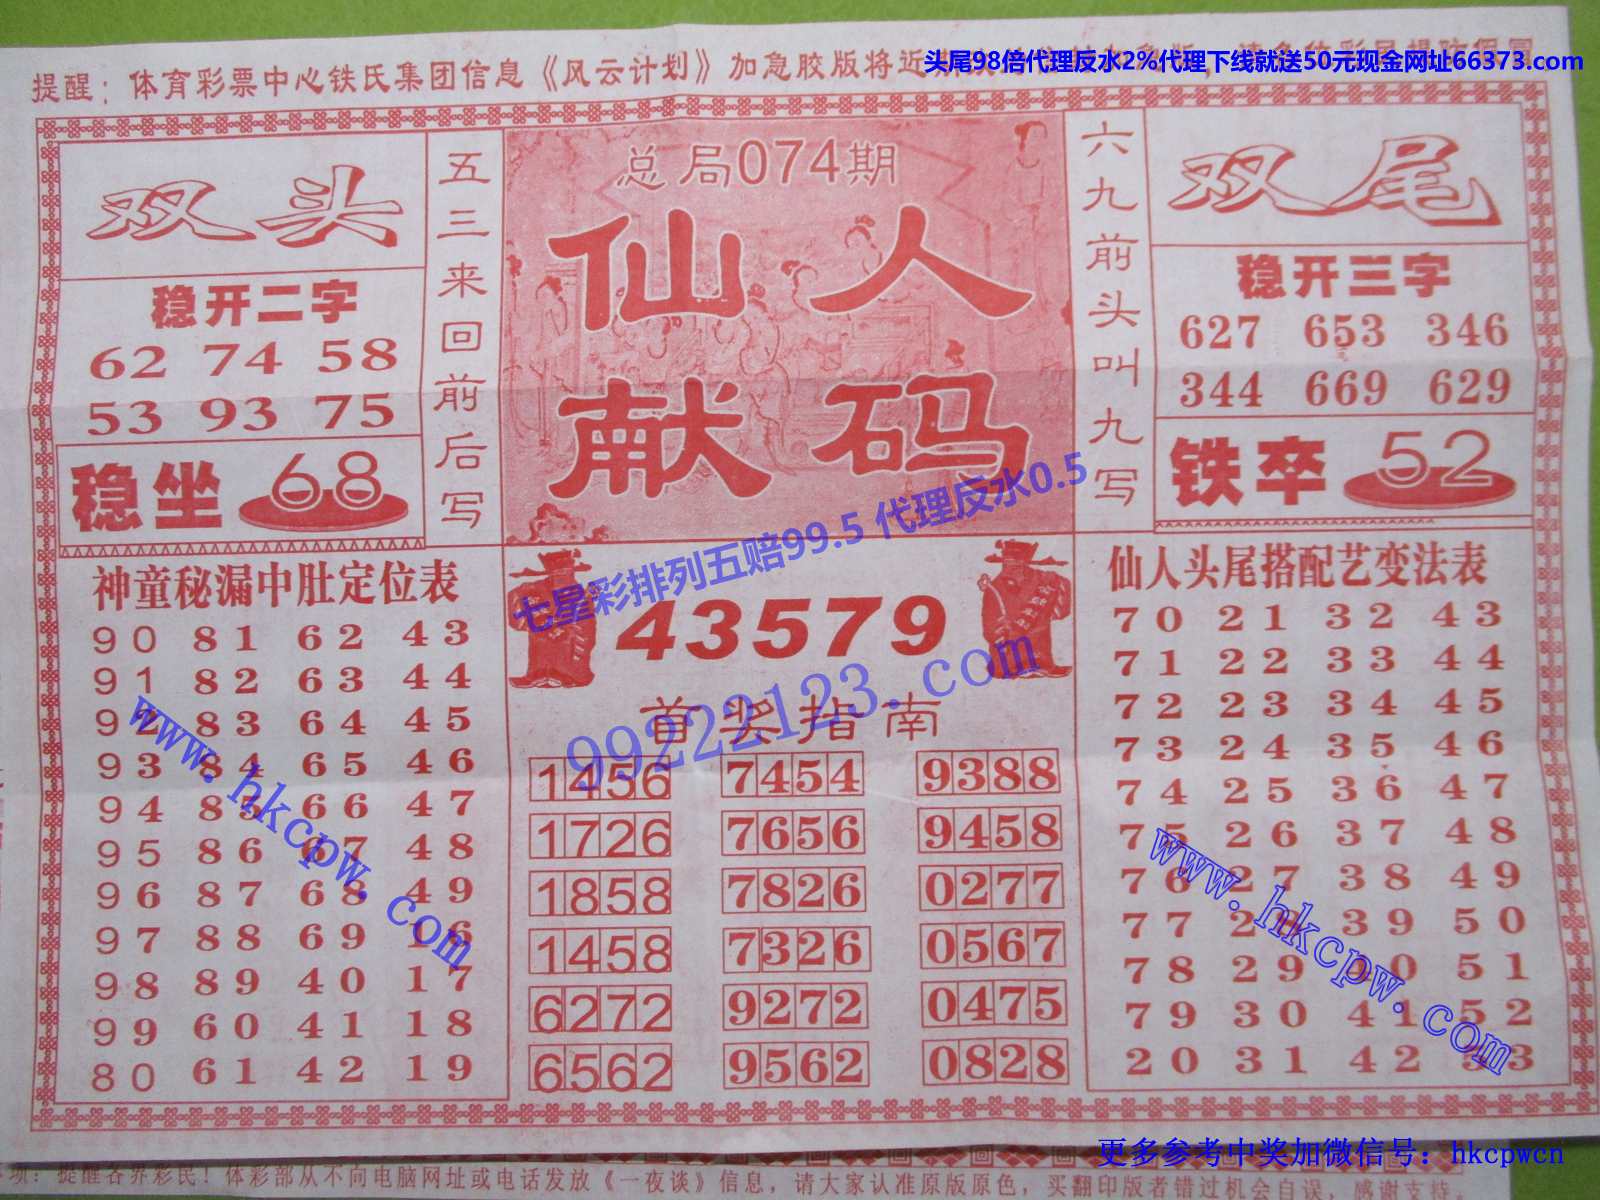 头尾98倍代理反水2%代理下线就送50元现金网址66373.com
提醒：体育彩票中心铁氏集团信息《风云计划》加急胶版将近
双头
稳开二字
62 74 58
53 93 75
稳坐 68
五三来回前后写
总局074期
仙人
献码
六九前头叫九写
双尾
稳开三字
627 653 346
344 669 629
铁卒 52
七星彩排列五赔99.5 代理反水0.5
99222123.com
神童秘漏中肚定位表
90 81 62 43
91 82 63 44
92 83 64 45
93 84 65 46
94 85 66 47
95 86 67 48
96 87 68 49
97 88 69 16
98 89 40 17
99 60 41 18
80 61 42 19
www.hkcpw.com
43579
首奖指南
1456 7454 9388
1726 7656 9458
1858 7826 0277
1458 7326 0567
6272 9272 0475
6562 9562 0828
仙人头尾搭配艺变法表
70 21 32 43
71 22 33 44
72 23 34 45
73 24 35 46
74 25 36 47
75 26 37 48
76 27 38 49
77 28 39 50
78 29 40 51
79 30 41 52
20 31 42 53
www.hkcpw.com
更多参考中奖加微信号：hkcpwcn
项：提醒各界彩民！体彩部从不向电脑网址或电话发放《一夜谈》信息，请大家认准原版原色，买翻印版者错过机会自误，感谢支持